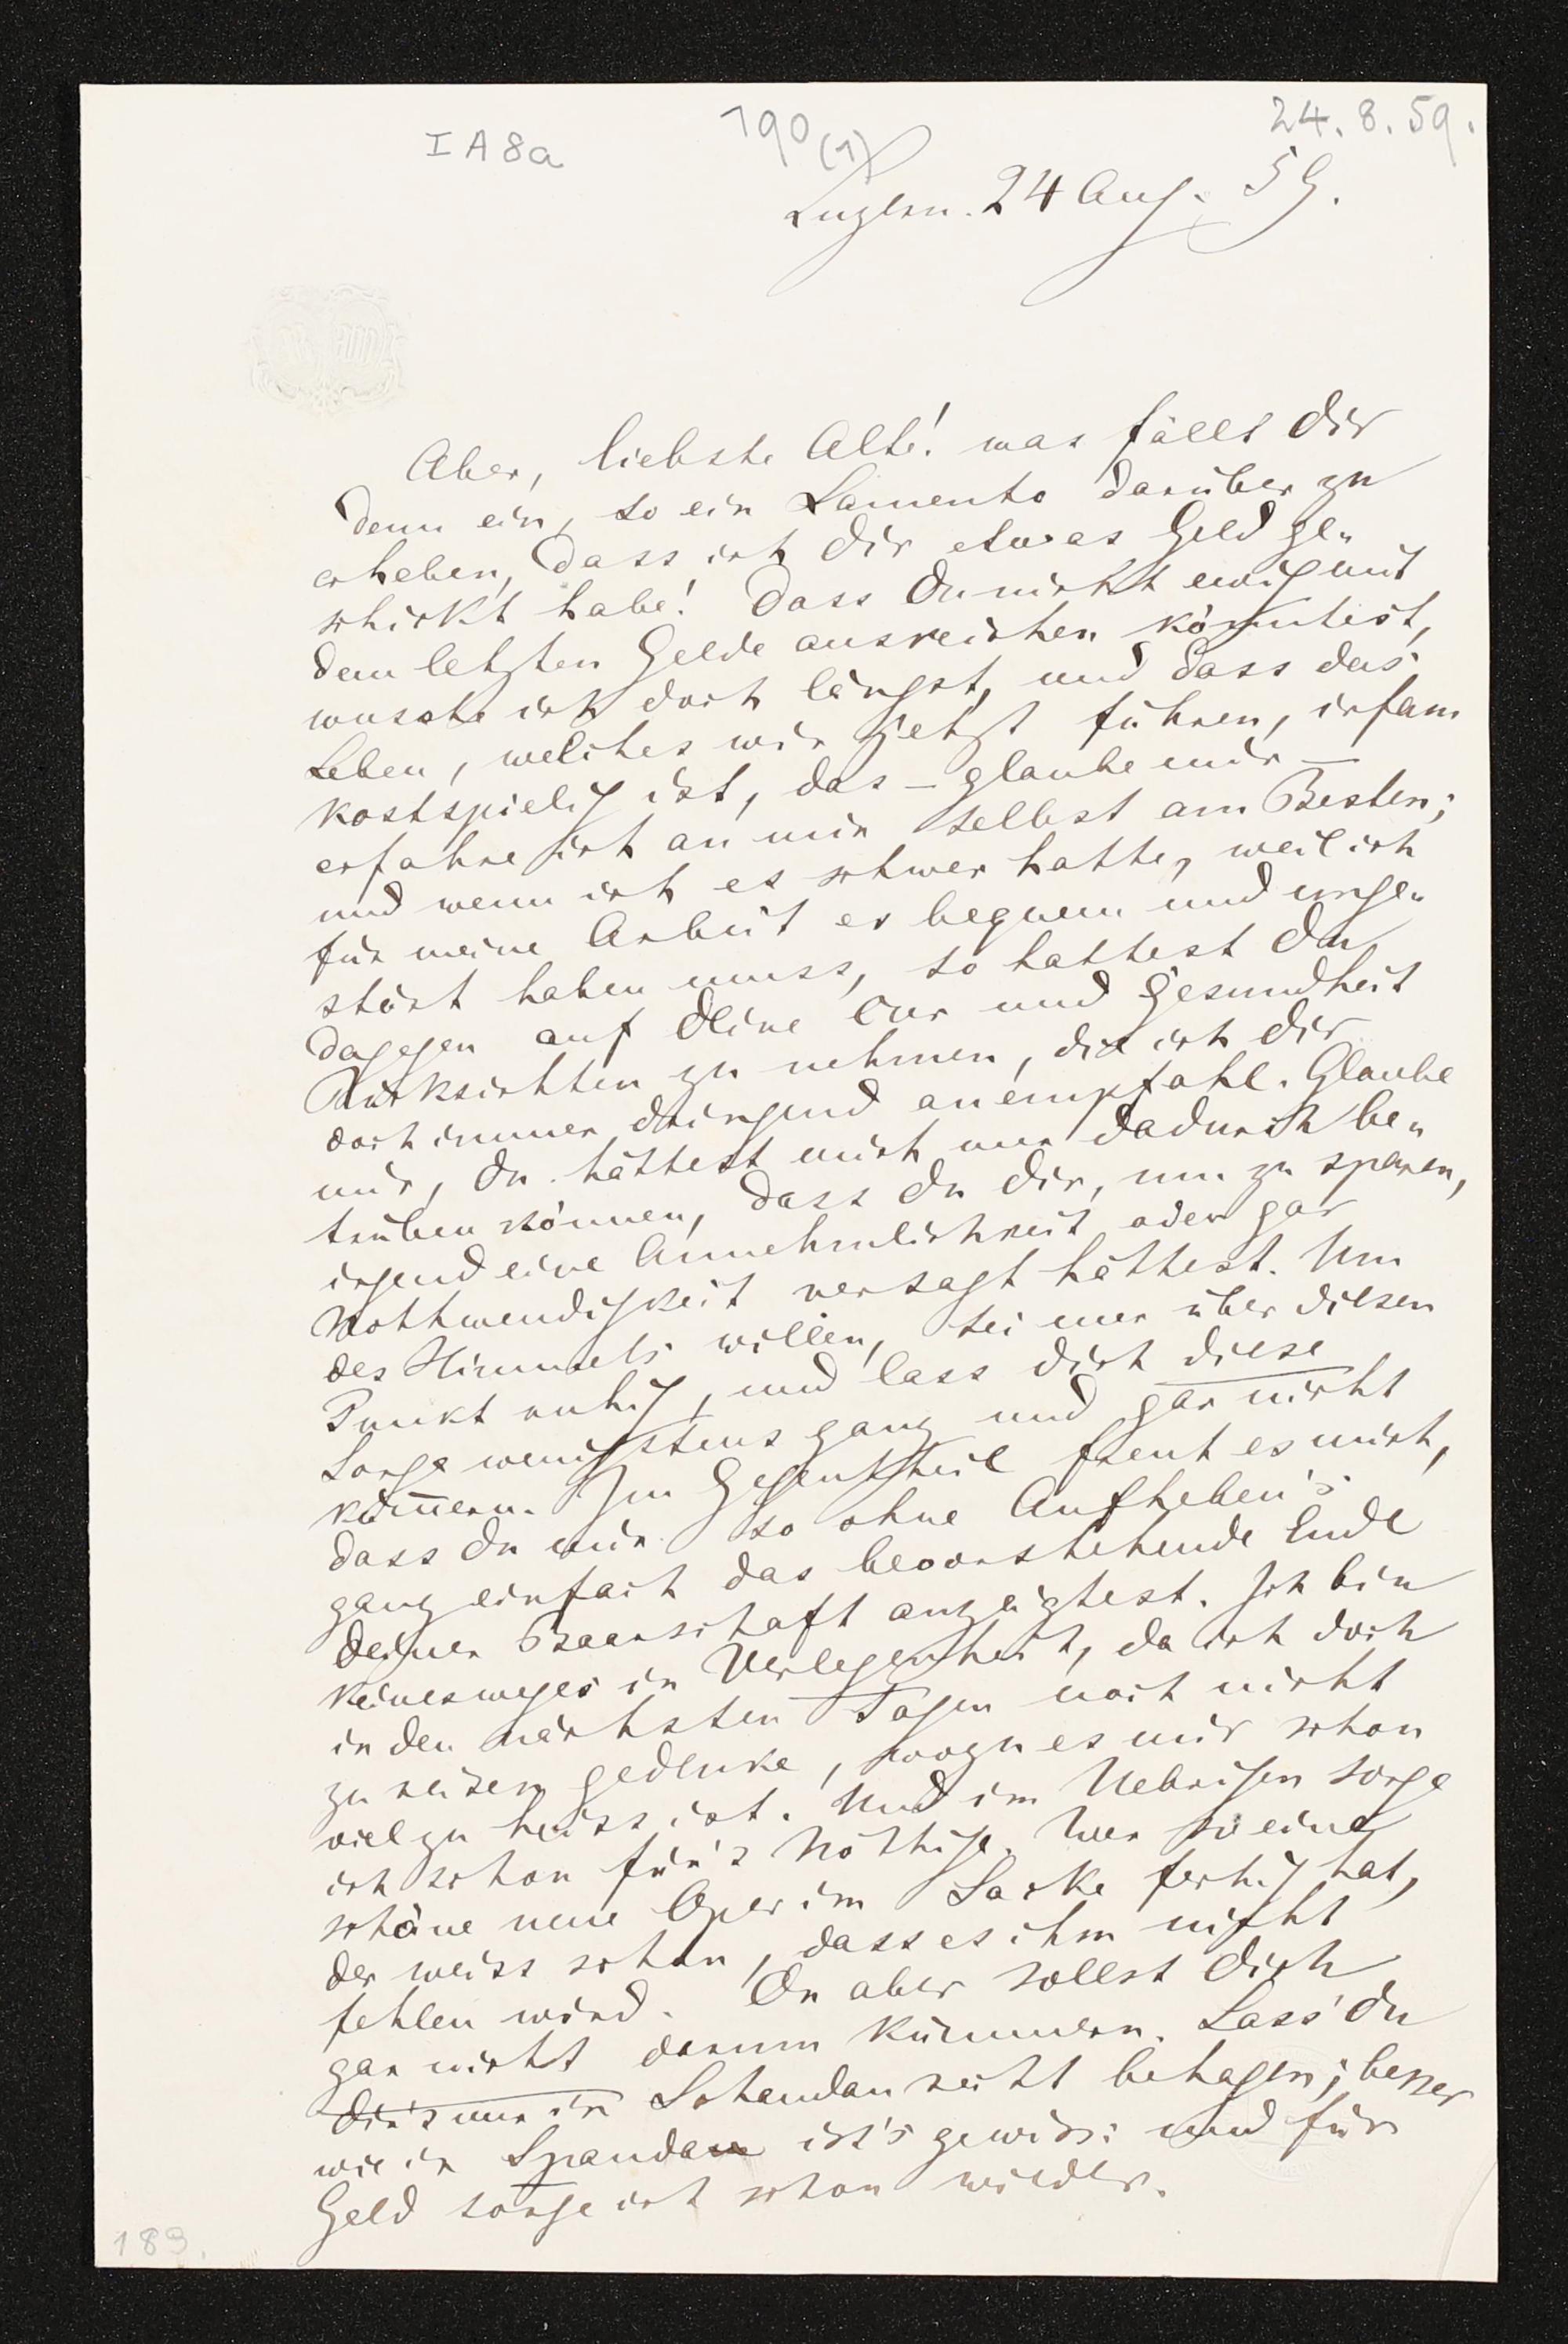 I A 8a
190 (1)
24. 8. 59.
Luzern. 24 Aug. 59.
Aber, liebste Alte! was fällt Dir
denn ein, so ein Lamento darüber zu
erheben, dass ich Dir etwas Geld ge-
schickt habe! Dass Du nicht ewig mit
dem letzten Gelde ausreichen könntest,
wusste ich doch längst, und dass das
Leben, welches wir jetzt führen, infam
kostspielig ist, das – glaube mir –
erfahre ich an mir selbst am Besten;
und wenn ich es schwer hatte, weil ich
für meine Arbeit es bequem und unge-
stört haben muss, so hattest Du
dagegen auf Deine Cur und Gesundheit
Rücksichten zu nehmen, die ich Dir
doch immer dringend anempfahl. Glaube
mir, Du hättest mich nur dadurch be-
trüben können, dass Du Dir, um zu sparen,
irgend eine Annehmlichkeit oder gar
Nothwendigkeit versagt hättest. Um
des Himmels willen, sei nur über diesen
Punkt ruhig, und lass Dich diese
Sorge wenigstens ganz und gar nicht
kümmern. Im Gegentheil freut es mich,
dass Du mir so ohne Aufheben's
ganz einfach das bevorstehende Ende
Deiner Baarschaft anzeigtest. Ich bin
keinesweges in Verlegenheit, da ich doch
in den nächsten Tagen noch nicht
zu reisen gedenke, wozu es mir schon
viel zu heiss ist. Und im Uebrigen sorge
ich schon für's Nöthige. Wer so eine
schöne neue Oper im Sacke fertig hat,
der weiss schon, dass es ihm nicht
fehlen wird. Du aber sollst Dich
gar nicht darum kümmern. Lass' Du
Dir's nur in Schandau recht behagen; besser
wie in Spandau ist's gewiss: und für
Geld sorge ich schon wieder.
189.